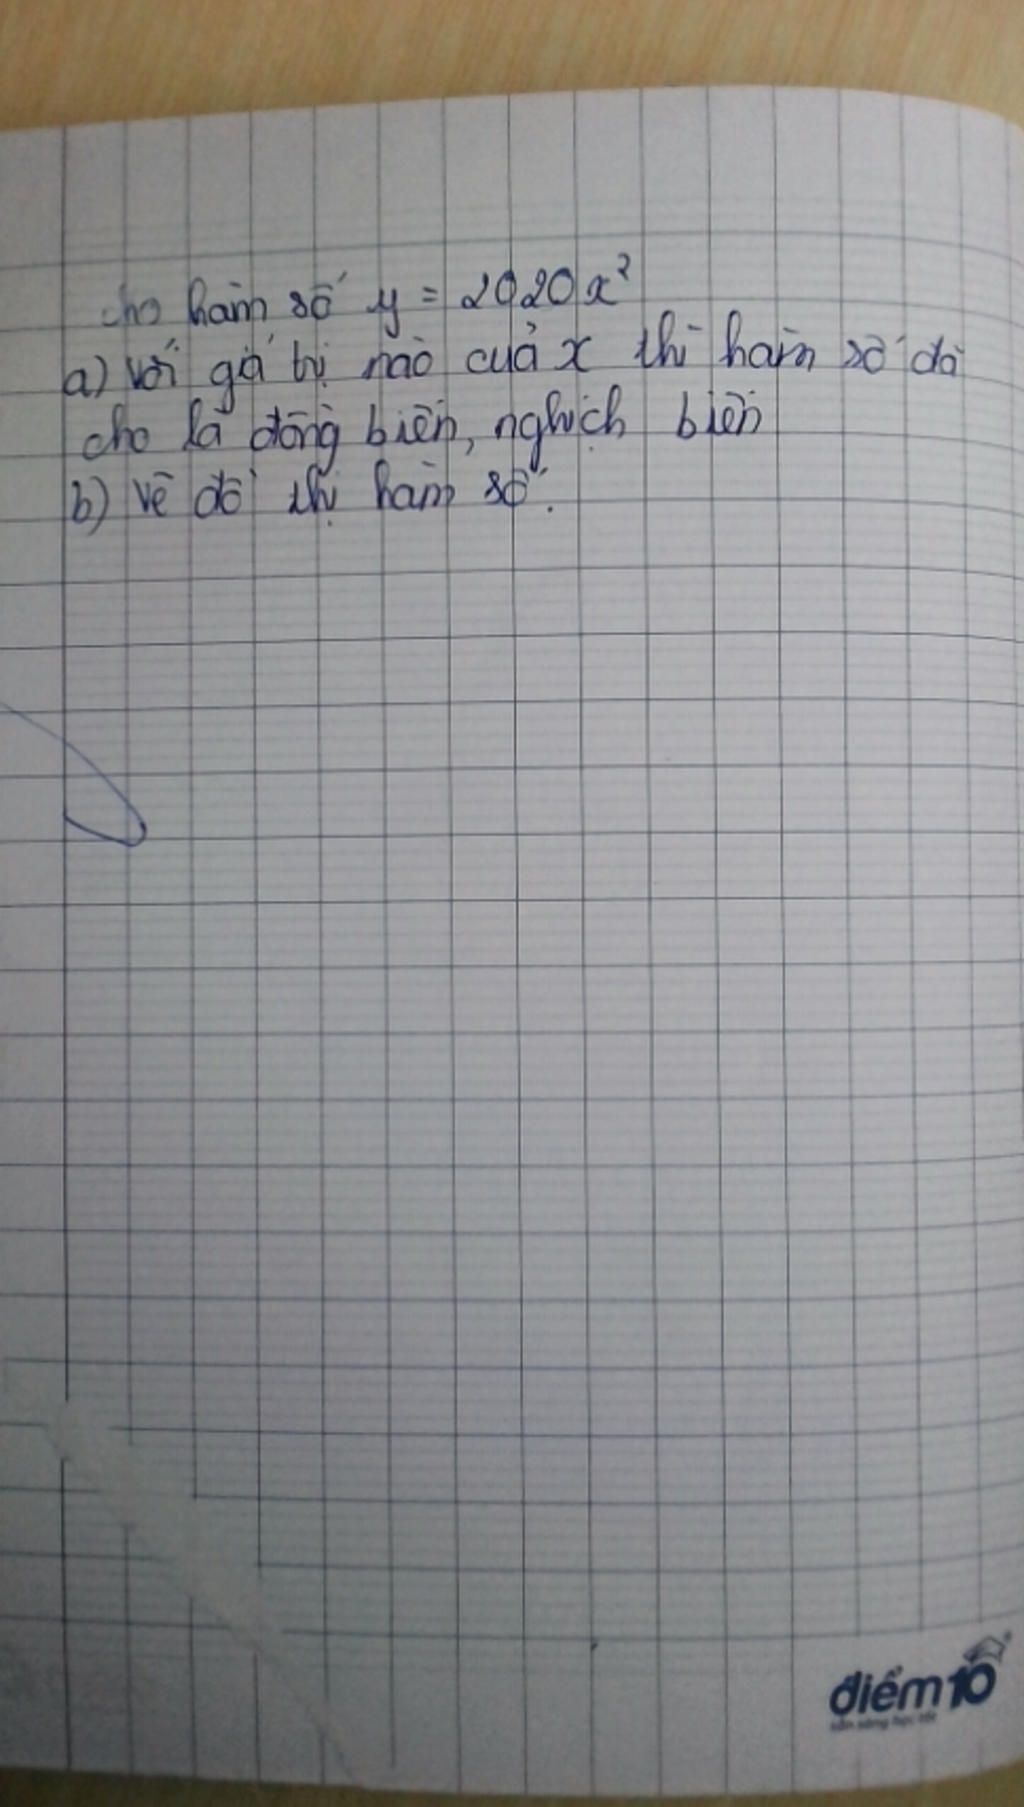 cho hàm số y = 2020x²
a) với giá trị nào của x thì hàm số đã
cho là đồng biến, nghịch biến
b) vẽ đồ thị hàm số.
điểm10
sẵn sàng học tốt